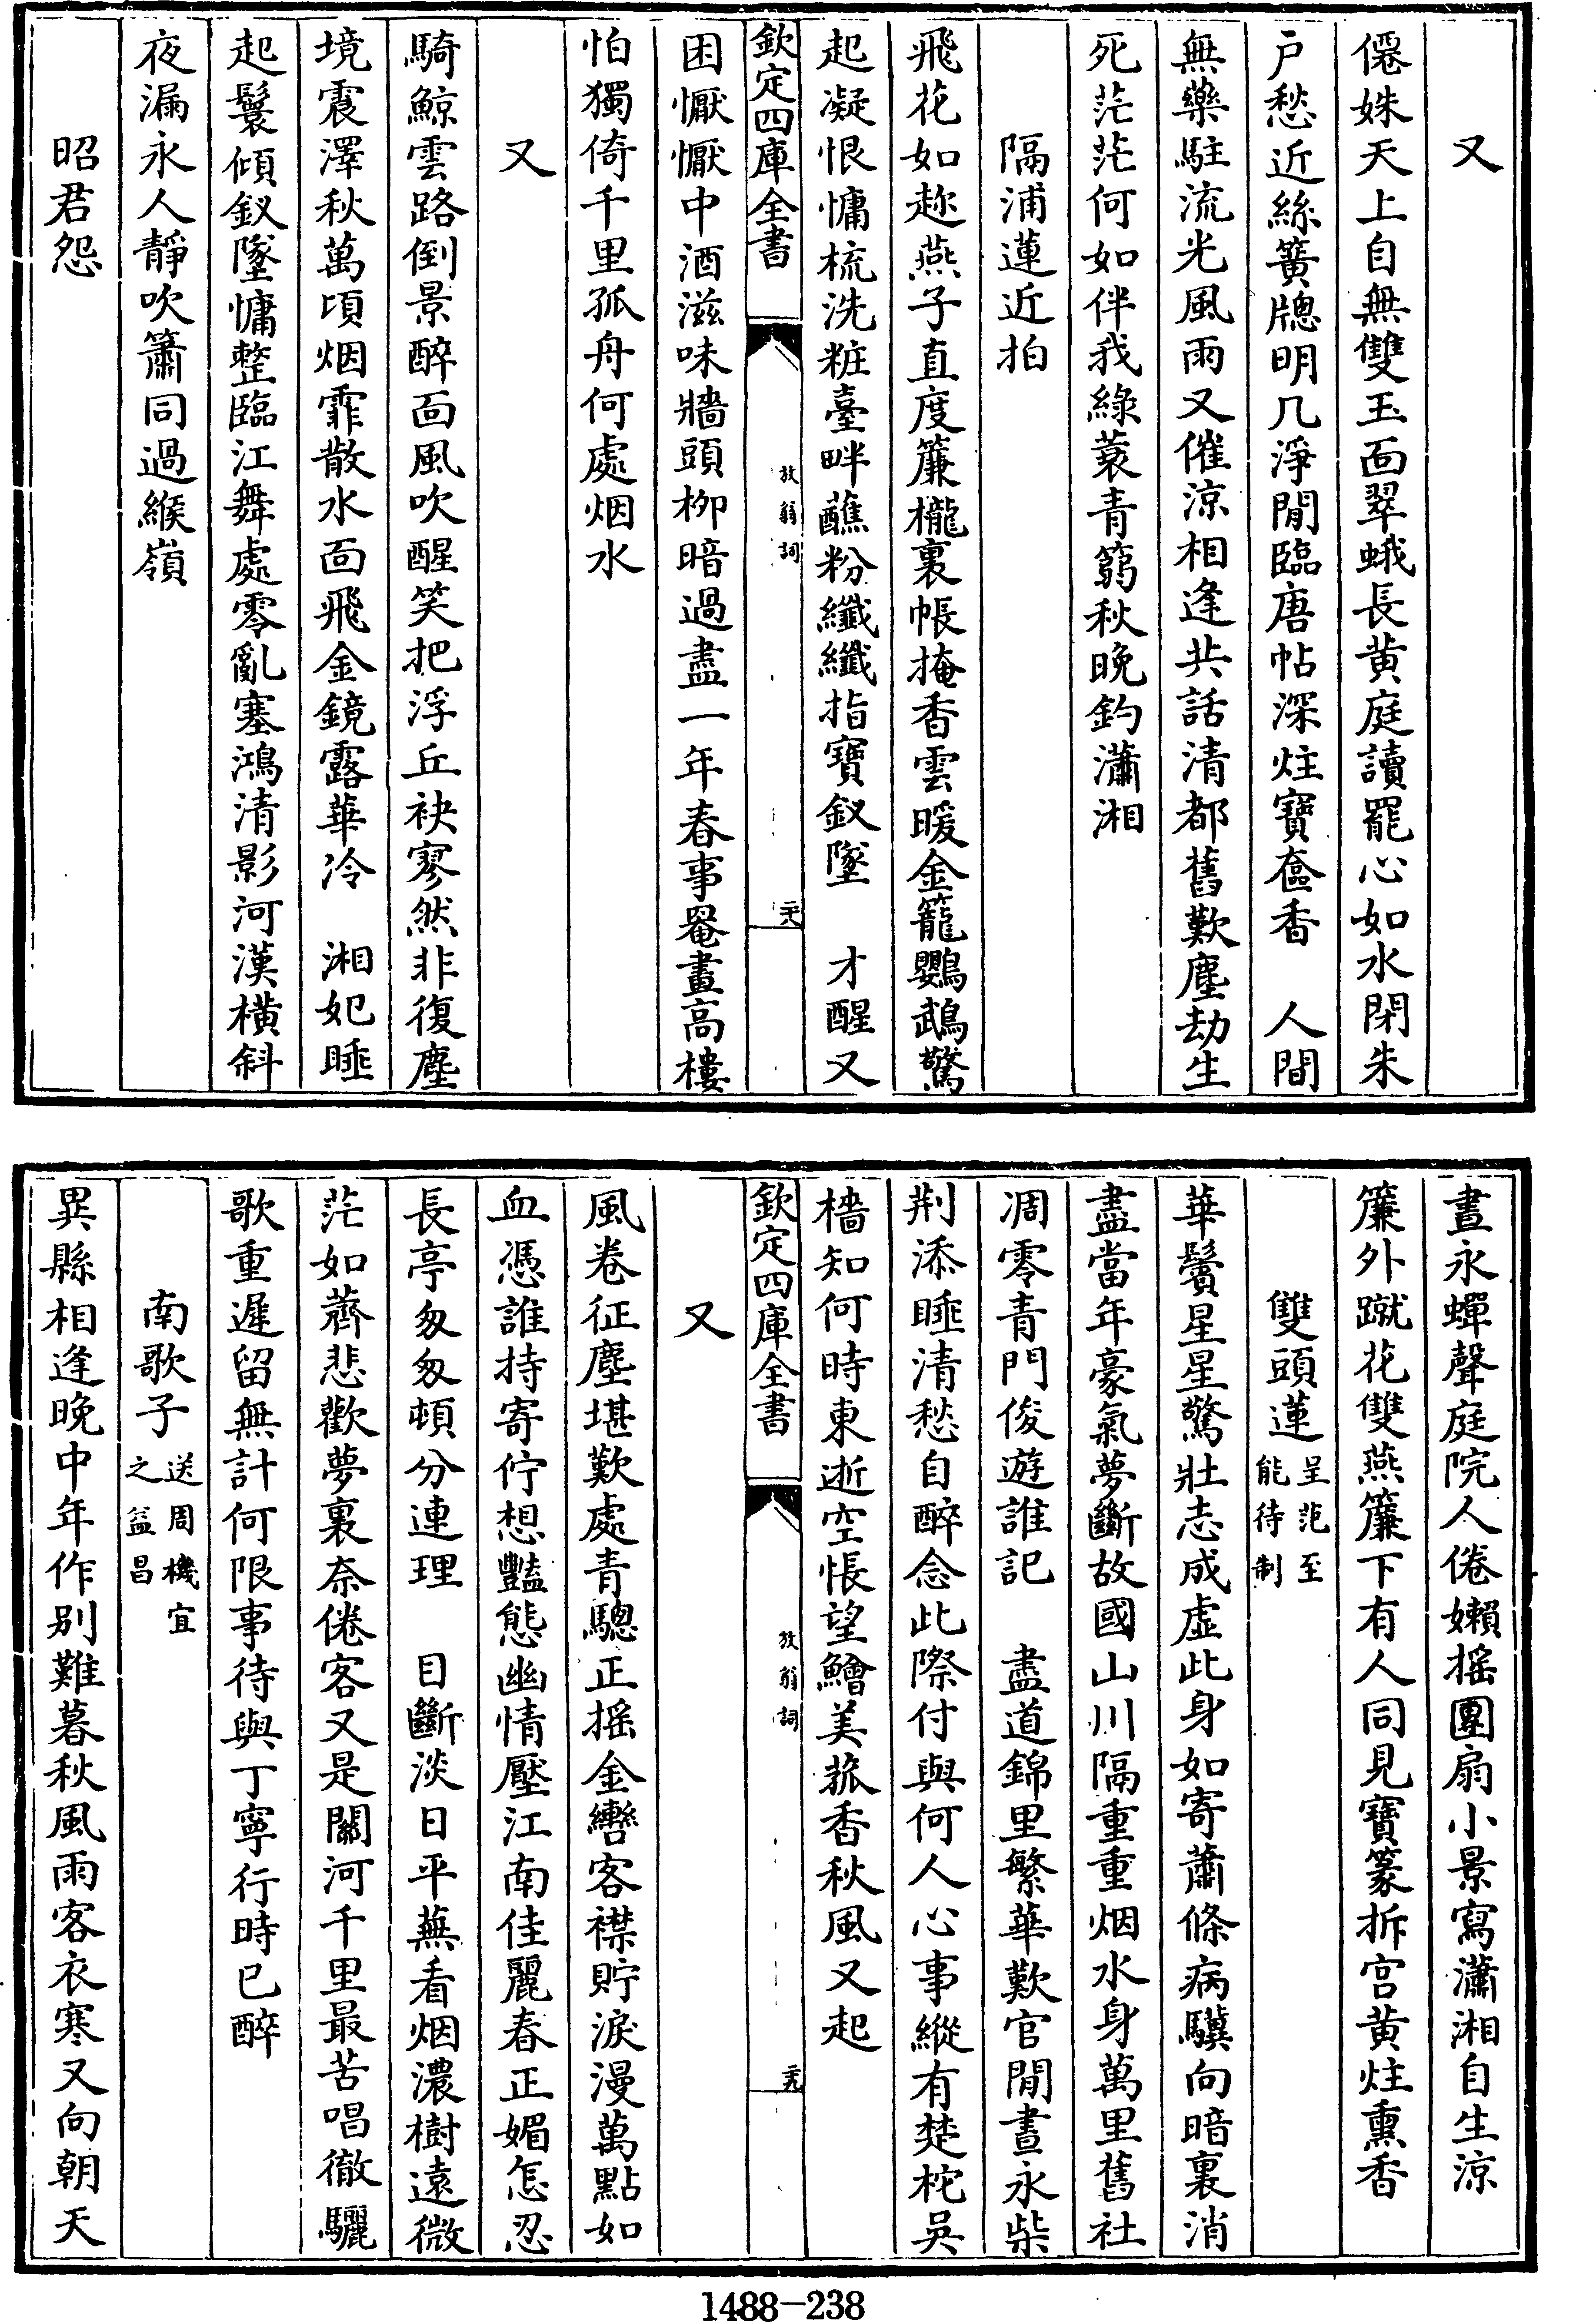 又
僊姝天上自無雙玉面翠蛾長黄庭讀罷心如水閉朱
户愁近絲簧牎明几淨閒臨唐帖深炷寶奩香　人間
無藥駐流光風雨又催涼相逢共話清都舊歎塵劫生
死茫茫何如伴我綠蓑青篛秋晚釣瀟湘
隔浦蓮近拍
飛花如趂燕子直度簾櫳裏帳掩香雲暖金籠鸚鵡驚
起凝恨慵梳洗粧臺畔蘸粉纖纖指寶釵墜　才醒又
欽定四庫全書
放翁詞
二十八
困懨懨中酒滋味牆頭柳暗過盡一年春事罨畫高樓
怕獨倚千里孤舟何處烟水
又
騎鯨雲路倒景醉面風吹醒笑把浮丘袂寥然非復塵
境震澤秋萬頃烟霏散水面飛金鏡露華冷　湘妃睡
起鬟傾釵墜慵整臨江舞處零亂塞鴻清影河漢橫斜
夜漏永人靜吹簫同過緱嶺
昭君怨
晝永蟬聲庭院人倦嬾揺團扇小景寫瀟湘自生涼
簾外蹴花雙燕簾下有人同見寶篆拆宫黄炷熏香
雙頭蓮呈范至能待制
華鬢星星驚壯志成虛此身如寄蕭條病驥向暗裏消
盡當年豪氣夢斷故國山川隔重重烟水身萬里舊社
凋零青門俊遊誰記　盡道錦里繁華歎官閒晝永柴
荆添睡清愁自醉念此際付與何人心事縱有楚柁吳
檣知何時東逝空悵望鱠美菰香秋風又起
欽定四庫全書
放翁詞
二十九
又
風卷征塵堪歎處青驄正揺金轡客襟貯淚漫萬點如
血憑誰持寄佇想豔態幽情壓江南佳麗春正媚怎忍
長亭匆匆頓分連理　目斷淡日平蕪看烟濃樹遠微
茫如薺悲歡夢裏奈倦客又是關河千里最苦唱徹驪
歌重遲留無計何限事待與丁寧行時已醉
南歌子送周機宜之益昌
異縣相逢晚中年作别難暮秋風雨客衣寒又向朝天
1488—238